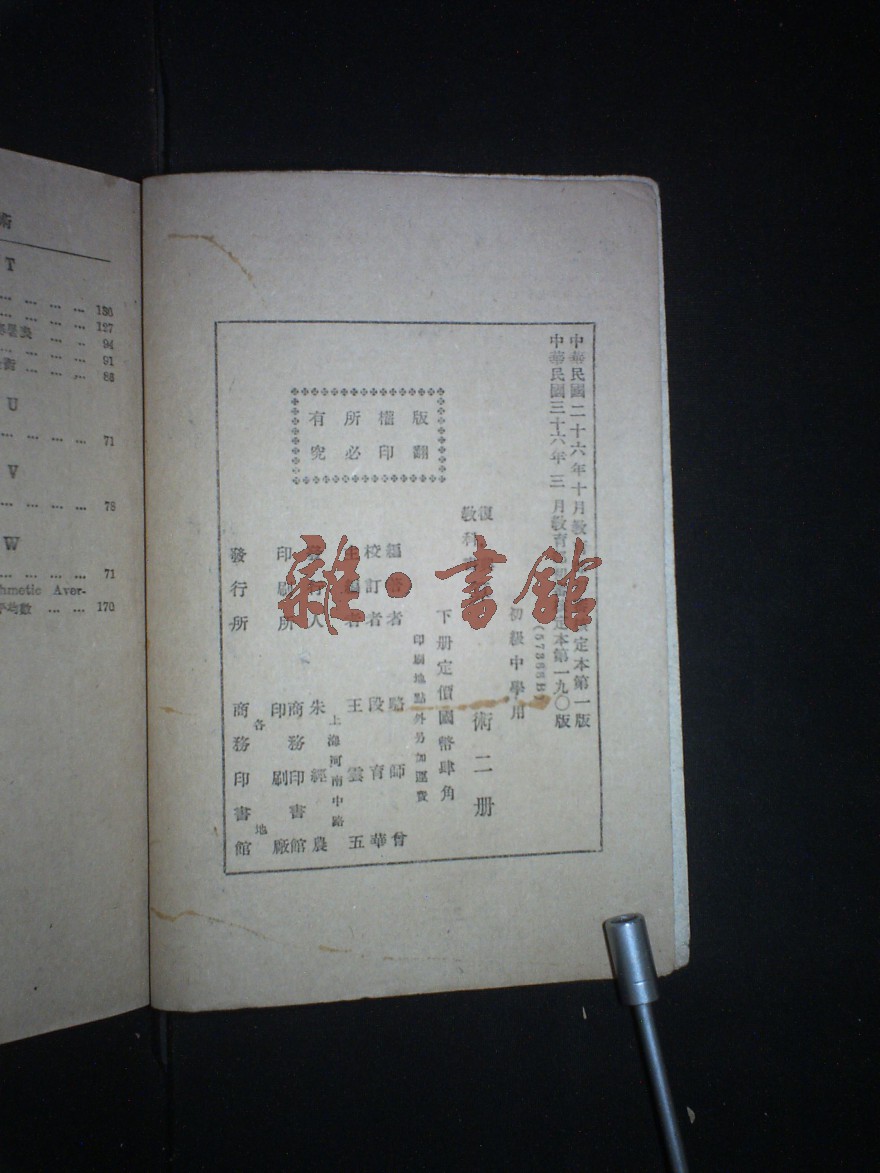 術
T
... ... ... ... 136
... ... ... ... 127
... ... .. 94
... ... ... ... 91
術 ... ... ... 86
U
... ... ... ... 71
V
... ... ... ... 78
W
... ... ... ... 71
hmetic Aver-
平均數 ... ... 170
中華民國二十六年十月教定本第一版
中華民國三十六年三月教育定本第一九〇版
初級中學用
復
教科
術二册
下册定價國幣肆角
印刷地點外另加運費
版權所有
翻印必究
編著者 駱師曾
校訂者 段育華
主編者 王雲五
上海河南中路
發行人 朱經農
印刷所 商務印書館印刷廠
發行所 各地商務印書館
雜·書館